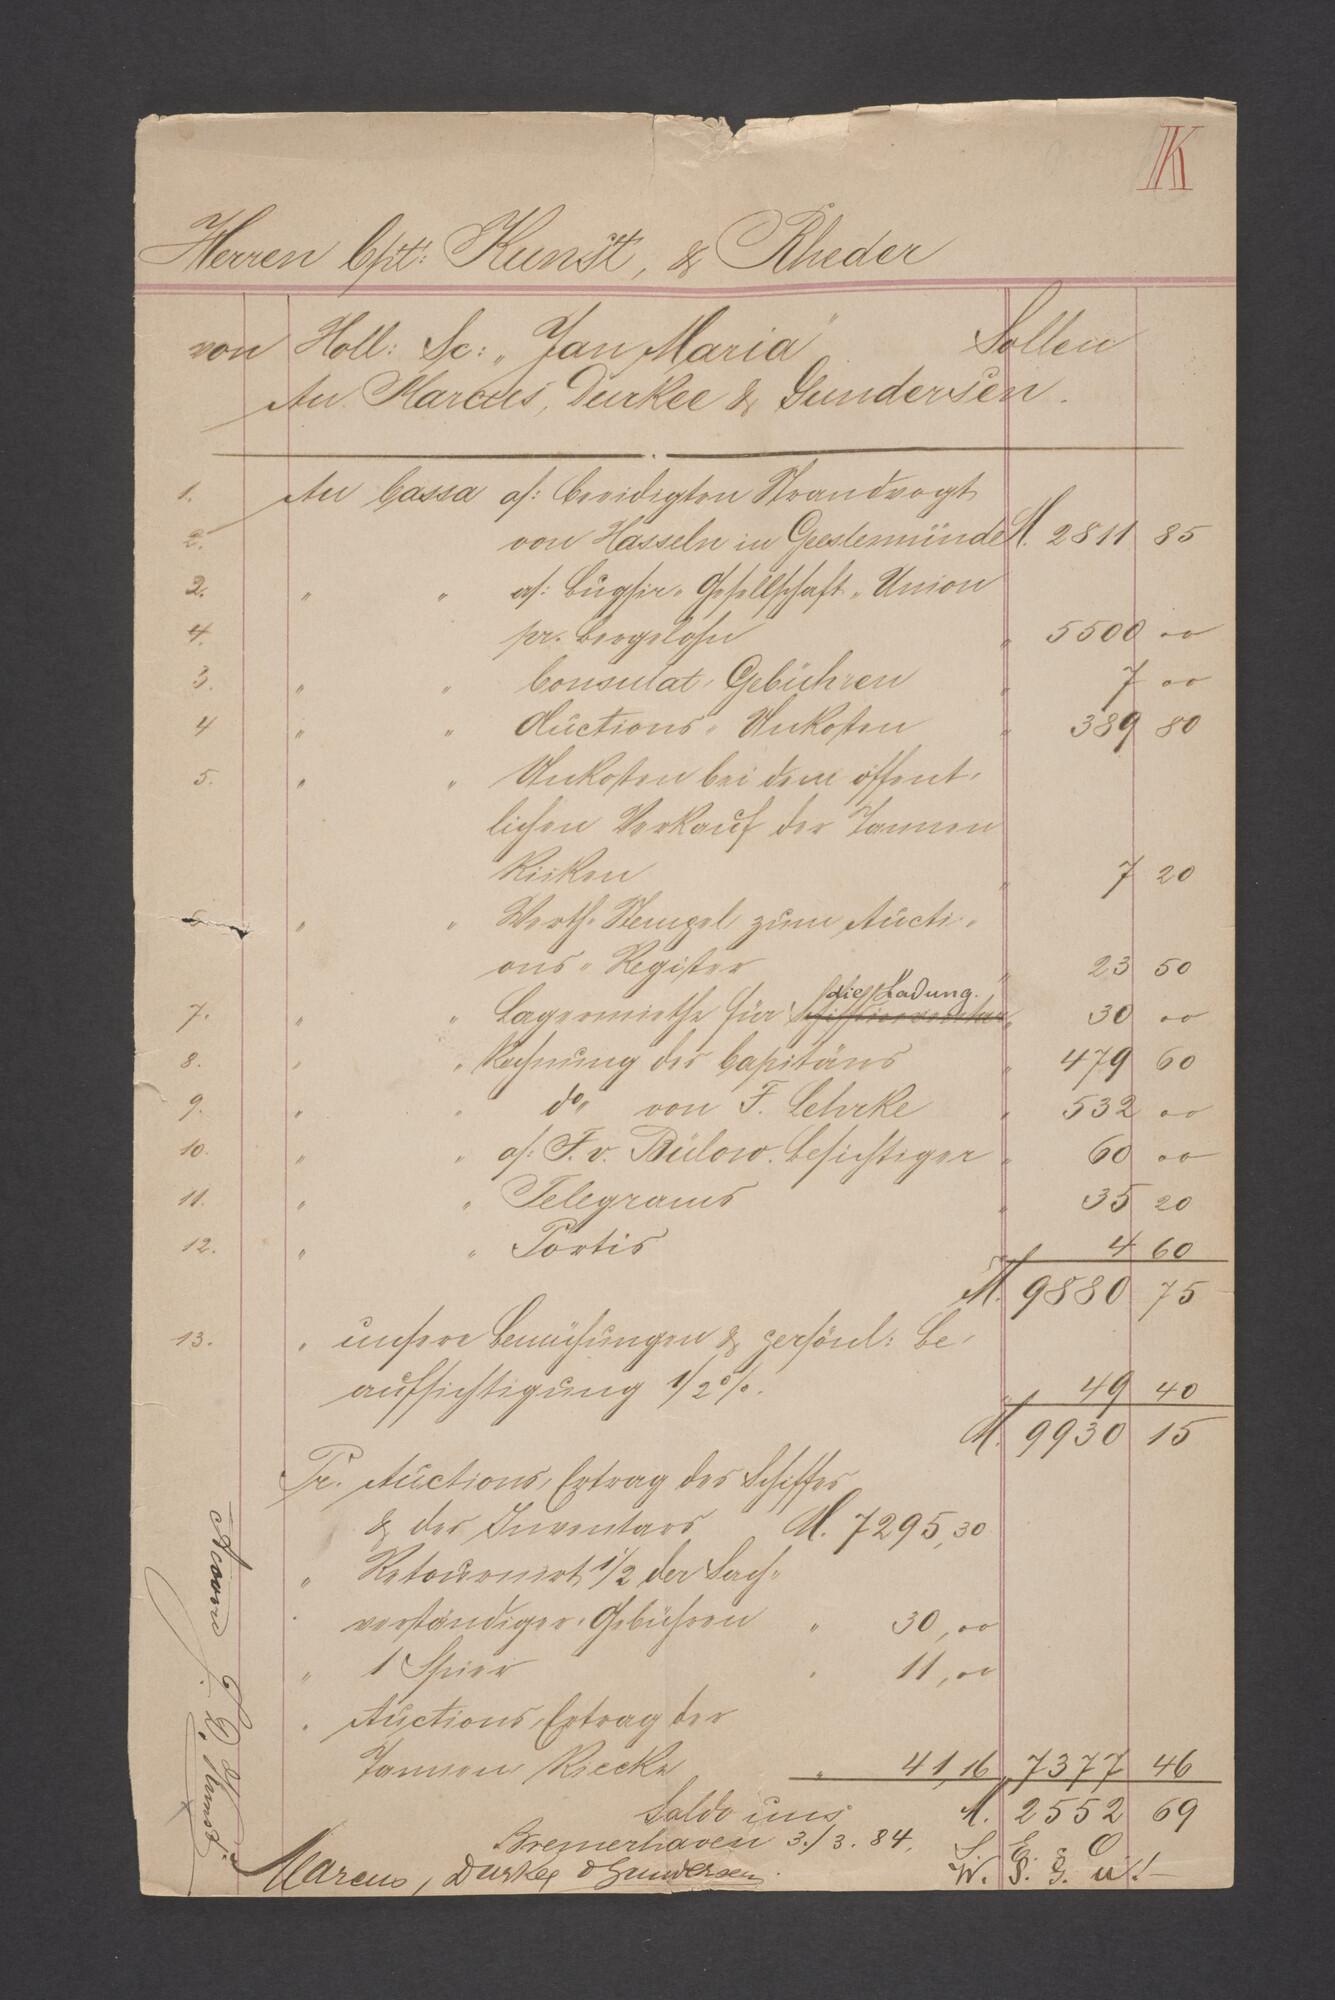 K
Herren Cpt: Kunst, & Rheder
von Holl: Sc: „Jan Maria" Sollen
An Marcus, Durkee & Gundersen.
1. An Cassa a/: beeidigten Strandvogt
2. von Hasseln in Geestemünde M. 2811 85
2. " " a/: Bugsir-Gesellschaft „Union
4. pr. Bergelohn " 5500 00
3. " " Consulat-Gebühren " 7 00
4 " " Auctions-Unkosten " 389 80
5. " " Unkosten bei dem öffent-
lichen Verkauf der Tannen
Ricken " 7 20
6 " " Werth-Stempel zum Aucti-
ons-Register " 23 50
die Ladung.
7. " " Lagermiethe für Schiffsinventar " 30 00
8. " " Rechnung des Capitäns " 479 60
9. " " do" von F. Lehrke " 532 00
10. " " a/: F. v. Bülow. Besichtiger " 60 00
11. " " Telegrams " 35 20
12. " " Portis " 4 60
M. 9880 75
13. " unsere Bemühungen & persönl: Be-
aufsichtigung 1/2%. " 49 40
M. 9930 15
Pr. Auctions-Ertrag des Schiffes
& des Inventars M. 7295,30
" Retournirt 1/2 der Sach-
verständiger-Gebühren " 30,00
" 1 Spier " 11,00
" Auctions-Ertrag der
Tannen Riecke " 41,16 7377 46
Saldo uns M. 2552 69
Bremerhaven 3./3. 84. S. E. & O
Marcus, Durkee & Gundersen. W. S. G. u!
Accoord